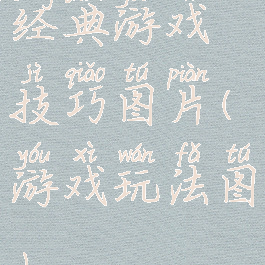 经典游戏
jì qiǎo tú piàn
技巧图片(
yóu xì wán fǎ tú
游戏玩法图
)